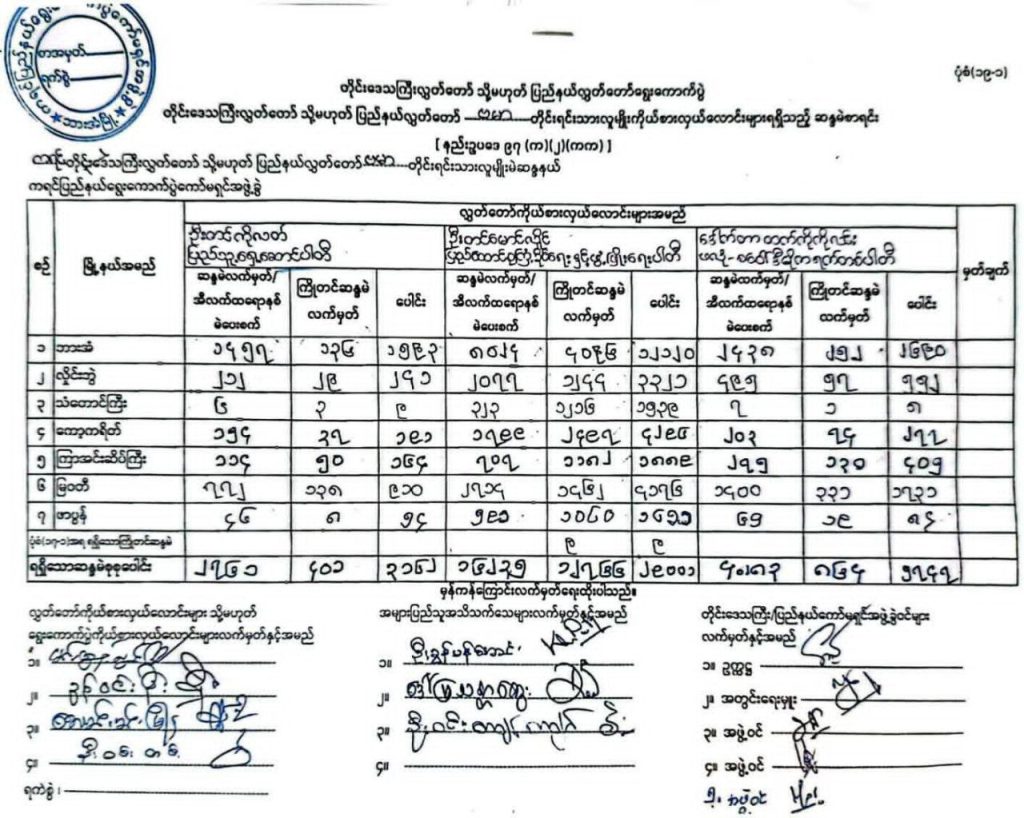 စာအမှတ်
ရက်စွဲ
ဘားအံမြို့
ပုံစံ(၁၉-၁)
တိုင်းဒေသကြီးလွှတ်တော် သို့မဟုတ် ပြည်နယ်လွှတ်တော်ရွေးကောက်ပွဲ
တိုင်းဒေသကြီးလွှတ်တော် သို့မဟုတ် ပြည်နယ်လွှတ်တော် ဗမာ တိုင်းရင်းသားလူမျိုးကိုယ်စားလှယ်လောင်းများရရှိသည့် ဆန္ဒမဲစာရင်း
[ နည်းဥပဒေ ၉၇ (က)(၂)(ကက) ]
ကရင် တိုင်းဒေသကြီးလွှတ်တော် သို့မဟုတ် ပြည်နယ်လွှတ်တော် ဗမာ တိုင်းရင်းသားလူမျိုးမဲဆန္ဒနယ်
ကရင်ပြည်နယ်ရွေးကောက်ပွဲကော်မရှင်အဖွဲ့ခွဲ
စဉ် မြို့နယ်အမည် လွှတ်တော်ကိုယ်စားလှယ်လောင်းများအမည် မှတ်ချက်
ဦးတင်ကိုလတ် ဦးတင်မောင်လှိုင် ဒေါက်တာ ထက်ကိုကိုလင်း
ပြည်သူ့ရှေ့ဆောင်ပါတီ ပြည်ထောင်စုကြံ့ခိုင်ရေးနှင့်ဖွံ့ဖြိုးရေးပါတီ
ဆန္ဒမဲလက်မှတ်/အီလက်ထရောနစ်မဲပေးစက် ကြိုတင်ဆန္ဒမဲလက်မှတ် ပေါင်း ဆန္ဒမဲလက်မှတ်/အီလက်ထရောနစ်မဲပေးစက် ကြိုတင်ဆန္ဒမဲလက်မှတ် ပေါင်း ဆန္ဒမဲလက်မှတ်/အီလက်ထရောနစ်မဲပေးစက် ကြိုတင်ဆန္ဒမဲလက်မှတ် ပေါင်း
၁ ဘားအံ ၁၄၅၇ ၁၃၆ ၁၅၉၃ ၈၀၂၄ ၄၀၉၆ ၁၂၁၂၀ ၂၄၃၈ ၂၅၂ ၂၆၉၀
၂ လှိုင်းဘွဲ ၂၁၂ ၂၉ ၂၄၁ ၂၀၇၇ ၁၂၄၄ ၃၃၂၁ ၄၉၅ ၅၇ ၅၅၂
၃ သံတောင်ကြီး ၆ ၃ ၉ ၃၂၃ ၁၂၁၆ ၁၅၃၉ ၇ ၁ ၈
၄ ကော့ကရိတ် ၁၅၄ ၃၇ ၁၉၁ ၁၇၉၉ ၂၄၉၇ ၄၂၉၆ ၂၀၃ ၇၄ ၂၇၇
၅ ကြာအင်းဆိပ်ကြီး ၁၁၄ ၅၀ ၁၆၄ ၇၀၇ ၁၁၈၂ ၁၈၈၉ ၂၇၅ ၁၃၀ ၄၀၅
၆ မြဝတီ ၇၇၂ ၁၃၈ ၉၁၀ ၂၇၁၄ ၁၄၆၂ ၄၁၇၆ ၁၄၀၀ ၃၃၁ ၁၇၃၁
၇ ဖာပွန် ၄၆ ၈ ၅၄ ၅၉၁ ၁၀၆၀ ၁၆၅၁ ၆၅ ၁၉ ၈၄
ပုံစံ(၁၇-၁)အရ ရရှိသောကြိုတင်ဆန္ဒမဲ ၉ ၉
ရရှိသောဆန္ဒမဲစုစုပေါင်း ၂၇၆၁ ၄၀၁ ၃၁၆၂ ၁၆၂၃၅ ၁၂၇၆၆ ၂၉၀၀၁ ၄၈၈၃ ၈၆၄ ၅၇၄၇
မှန်ကန်ကြောင်းလက်မှတ်ရေးထိုးပါသည်။
လွှတ်တော်ကိုယ်စားလှယ်လောင်းများ သို့မဟုတ်
ရွေးကောက်ပွဲကိုယ်စားလှယ်လောင်းများလက်မှတ်နှင့်အမည်
၁။
၂။ ခွန်ဝင်း
၃။
၄။ ဦးဝဏ္ဏ
ရက်စွဲ ၊
အများပြည်သူအသိသက်သေများလက်မှတ်နှင့်အမည်
၁။
၂။
၃။ ဦးဝင်းကျော်
၄။
တိုင်းဒေသကြီး/ပြည်နယ်ကော်မရှင်အဖွဲ့ခွဲဝင်များ
လက်မှတ်နှင့်အမည်
၁။ ဥက္ကဋ္ဌ
၂။ အတွင်းရေးမှူး
၃။ အဖွဲ့ဝင်
၄။ အဖွဲ့ဝင်
၅။ အဖွဲ့ဝင်